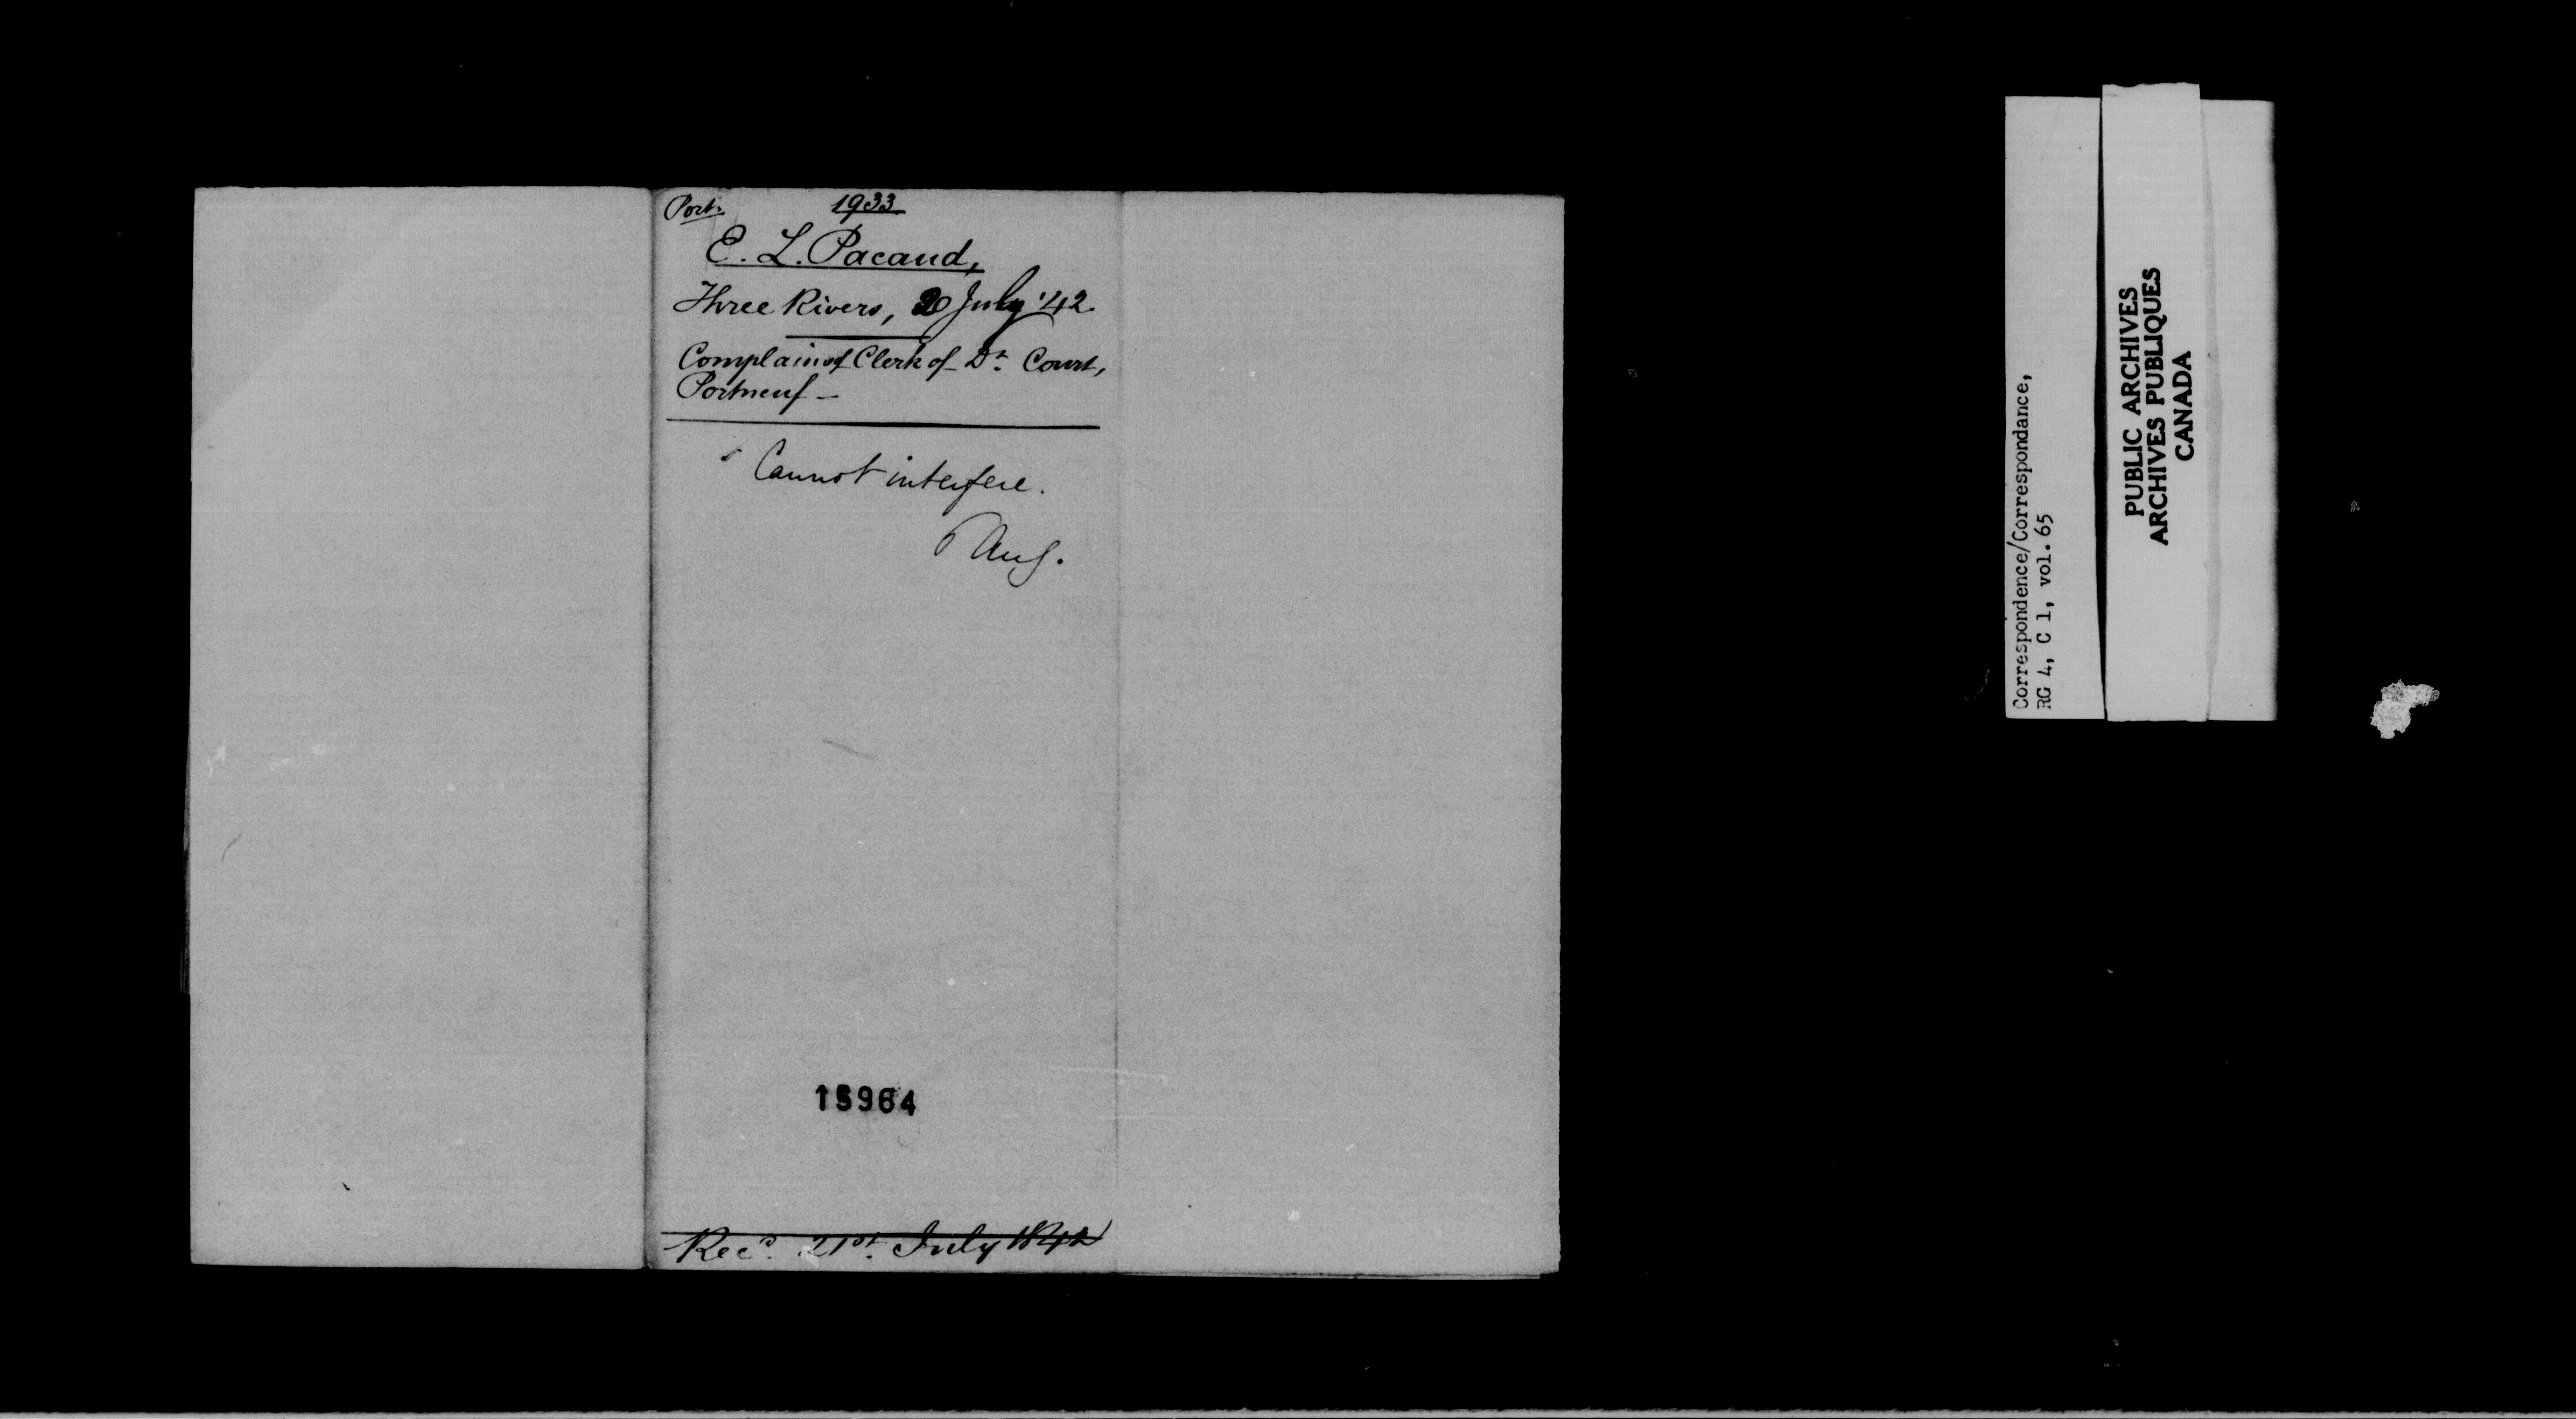 Port. 1933
E. L. Pacaud,
Three Rivers, 20 July '42.
Complains of Clerk of Dt. Court,
Portneuf –
Cannot interfere.
Aug.
15964
Recd. 21st. July 1842
Correspondence/Correspondance,
RG 4, C 1, vol. 65
PUBLIC ARCHIVES
ARCHIVES PUBLIQUES
CANADA